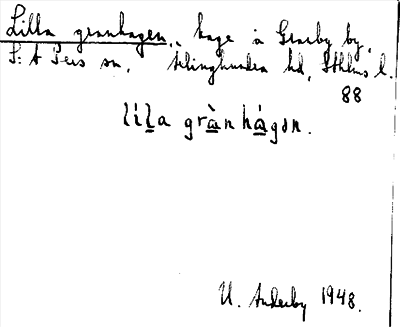 Lilla granhagen, hage å Granby by,
S:t Pers sn, hd, Sthlms l.
88
lìl̠a grànhágən.
U. Anderby 1948.